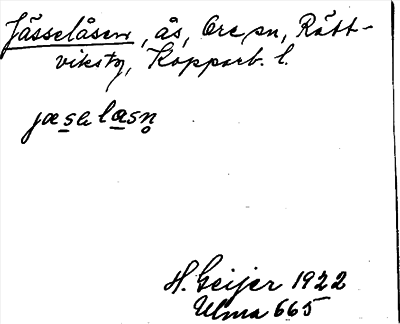 Jässelåsen, ås, Ore sn, Rätt-
vikstg, Kopparb. l.
jæselasn̥
H. Geijer 1922
Ulma 665